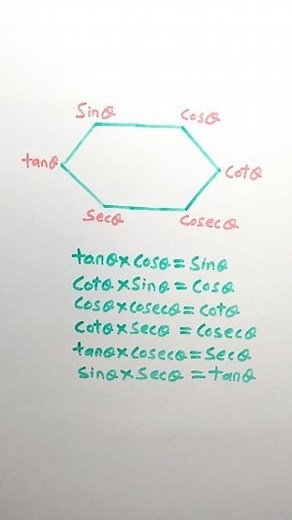 Sinθ Cosθ
tanθ Cotθ
Secθ Cosecθ
tanθ×Cosθ=Sinθ
Cotθ×Sinθ=Cosθ
Cosθ×Cosecθ=Cotθ
Cotθ×Secθ=Cosecθ
tanθ×Cosecθ=Secθ
Sinθ×Secθ=tanθ